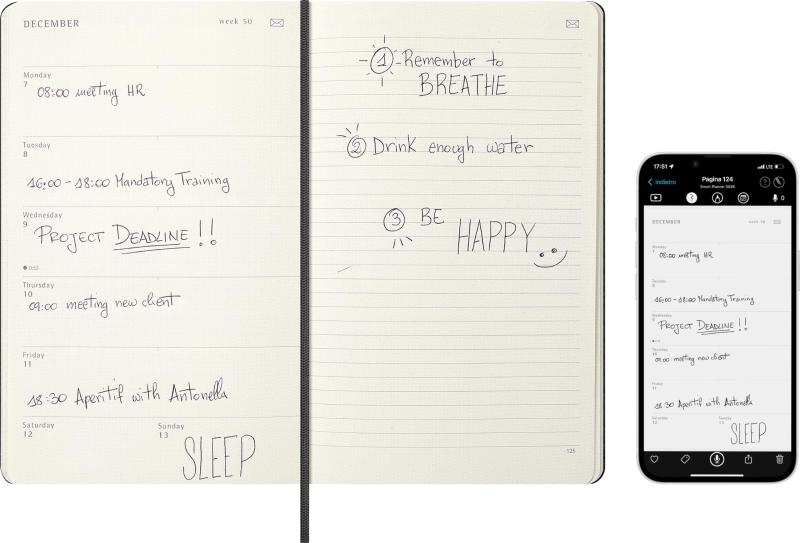 DECEMBER
week 50
Monday
7
08:00 meeting HR
Tuesday
8
16:00 - 18:00 Mandatory Training
Wednesday
9
PROJECT DEADLINE !!
0:52
Thursday
10
09:00 meeting new client
Friday
11
18:30 Aperitif with Antonella
Saturday
12
Sunday
13
SLEEP
1 Remember to
BREATHE
2 Drink enough water
3 BE
HAPPY
125
17:51
LTE
indietro
Pagina 124
Smart Planner 2026
0
DECEMBER
week 50
Monday
7
08:00 meeting HR
Tuesday
8
16:00 - 18:00 Mandatory Training
Wednesday
9
PROJECT DEADLINE !!
Thursday
10
09:00 meeting new client
Friday
11
18:30 Aperitif with Antonella
Saturday
12
Sunday
13
SLEEP